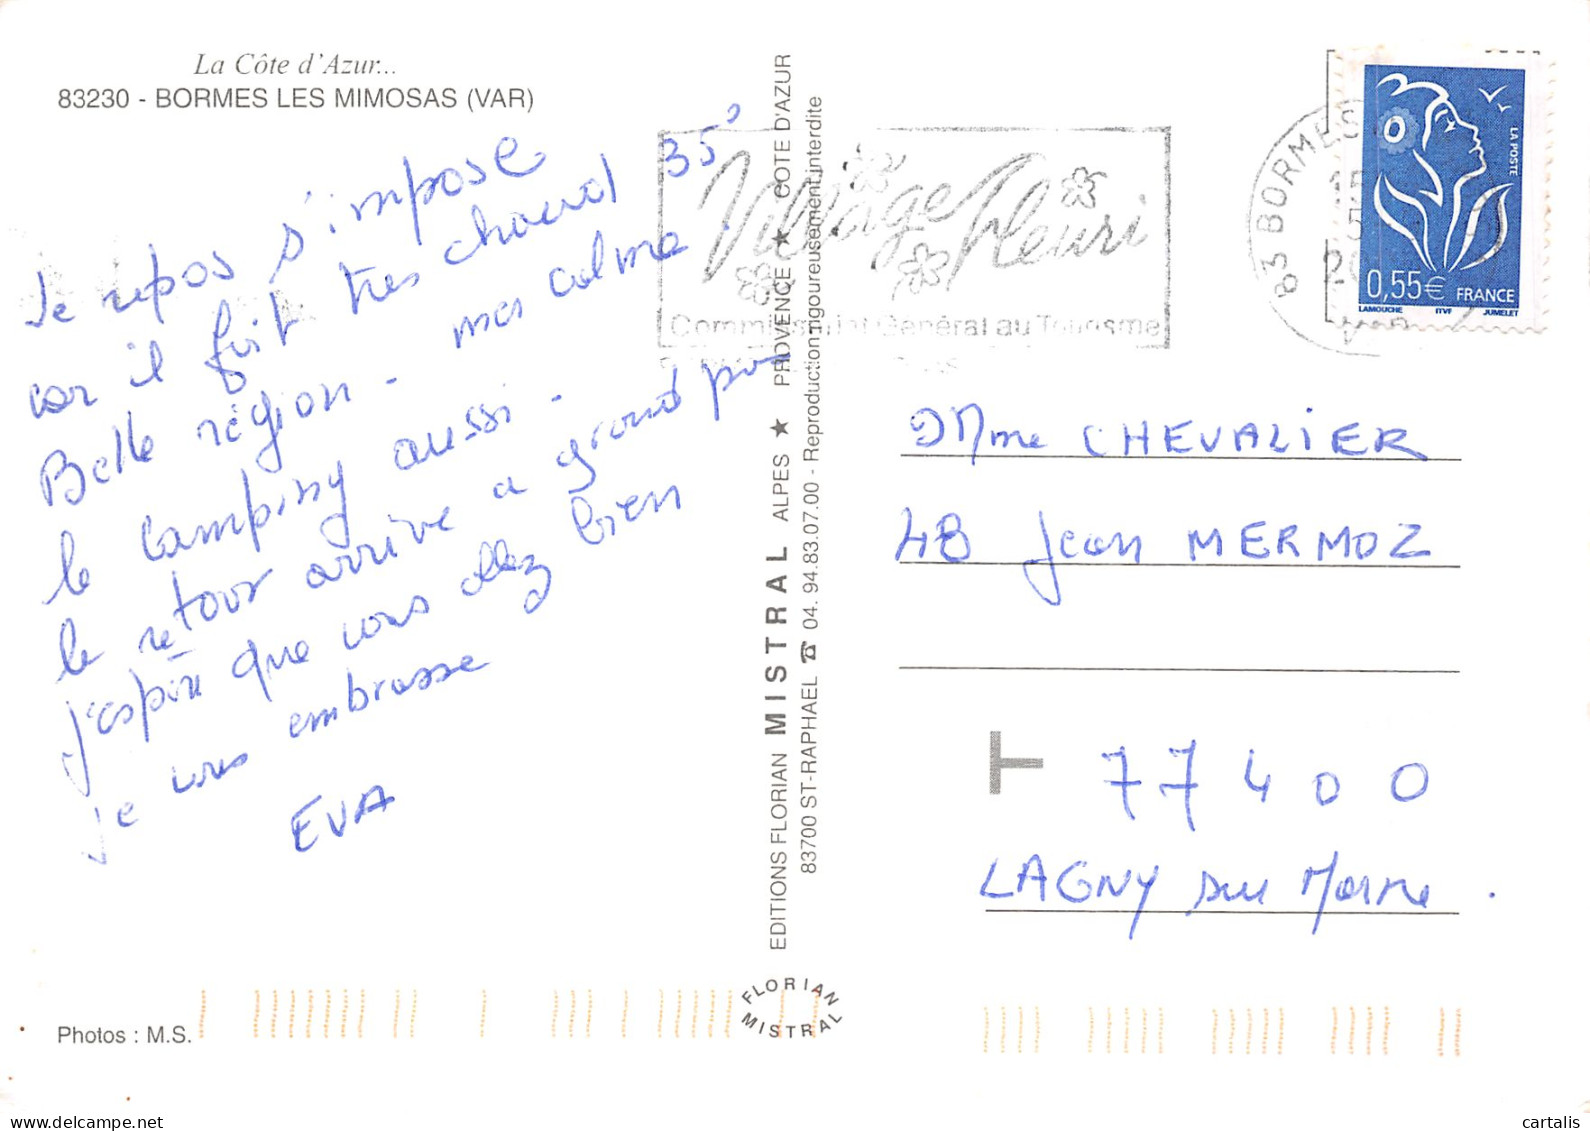 La Côte d'Azur...
83230 - BORMES LES MIMOSAS (VAR)
Le repos s'impose
car il fait tres chaud 35°
Belle région - mer calme.
le camping aussi -
le retour arrive a grand pas
j'espère que vous allez bien
je vous embrasse
EVA
Photos : M.S.
EDITIONS FLORIAN MISTRAL ALPES ★ PROVENCE ★ COTE D'AZUR
83700 ST-RAPHAEL ☎ 04. 94.83.07.00 - Reproduction rigoureusement interdite
FLORIAN
MISTRAL
Village fleuri
Commissariat Général au Tourisme
83 BORMES
LA POSTE
0,55€ FRANCE
LAMOUCHE ITVF JUMELET
Mme CHEVALIER
48 Jean MERMOZ
T 77400
LAGNY sur Marne.
cartalis